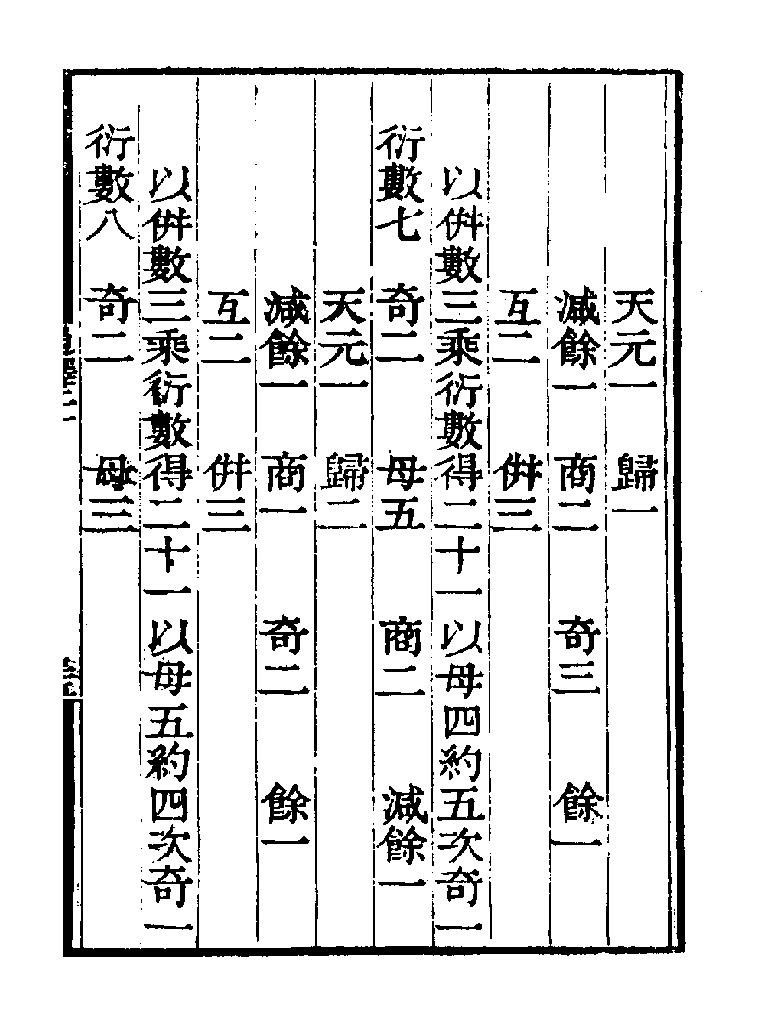 天元一 歸一
減餘一 商二 奇三 餘一
互二 併三
以併數三乘衍數得二十一以母四約五次奇一
衍數七 奇二 母五 商二 減餘一
天元一 歸二
減餘一 商一 奇二 餘一
互二 併三
以併數三乘衍數得二十一以母五約四次奇一
衍數八 奇二 母三